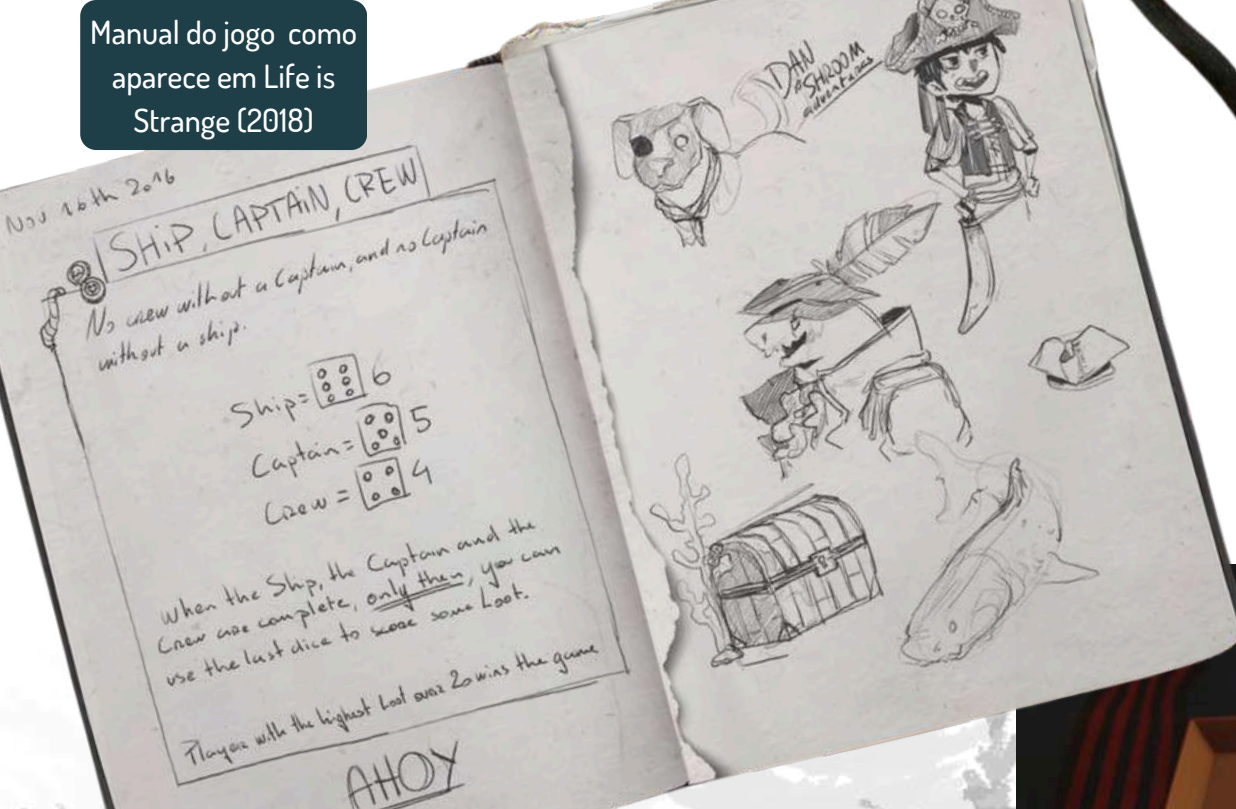 Manual do jogo como
aparece em Life is
Strange (2018)
Nov 16th 2016
SHIP, CAPTAIN, CREW
No crew without a Captain, and no Captain
without a ship.
Ship = 6
Captain = 5
Crew = 4
When the Ship, the Captain and the
Crew are complete, only then, you can
use the last dice to score some Loot.
Player with the highest Loot over 20 wins the game
AHOY
DAN
SHROOM
adventures